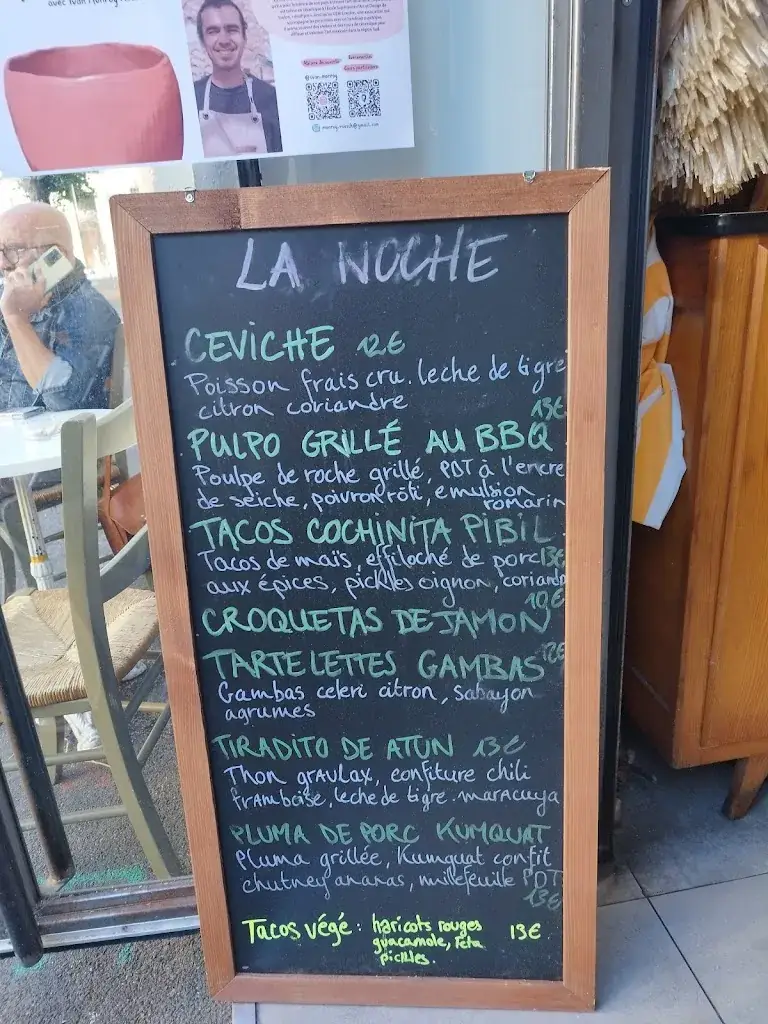 LA NOCHE
CEVICHE 12€
Poisson frais cru. leche de tigre
citron coriandre
13€
PULPO GRILLÉ AU BBQ
Poulpe de roche grillé, PDT à l'encre
de seiche, poivron rôti, emulsion
romarin
TACOS COCHINITA PIBIL
Tacos de maïs, effiloché de porc 13€
aux épices, pickles oignon, coriandre
10€
CROQUETAS DE JAMON
TARTELETTES GAMBAS 12€
Gambas celeri citron, sabayon
agrumes
TIRADITO DE ATUN 13€
Thon gravlax, confiture chili
framboise, leche de tigre. maracuya
PLUMA DE PORC KUMQUAT
Pluma grillée, Kumquat confit
chutney ananas, millefeuille PDT
13€
Tacos végé : haricots rouges 13€
guacamole, feta
pickles.